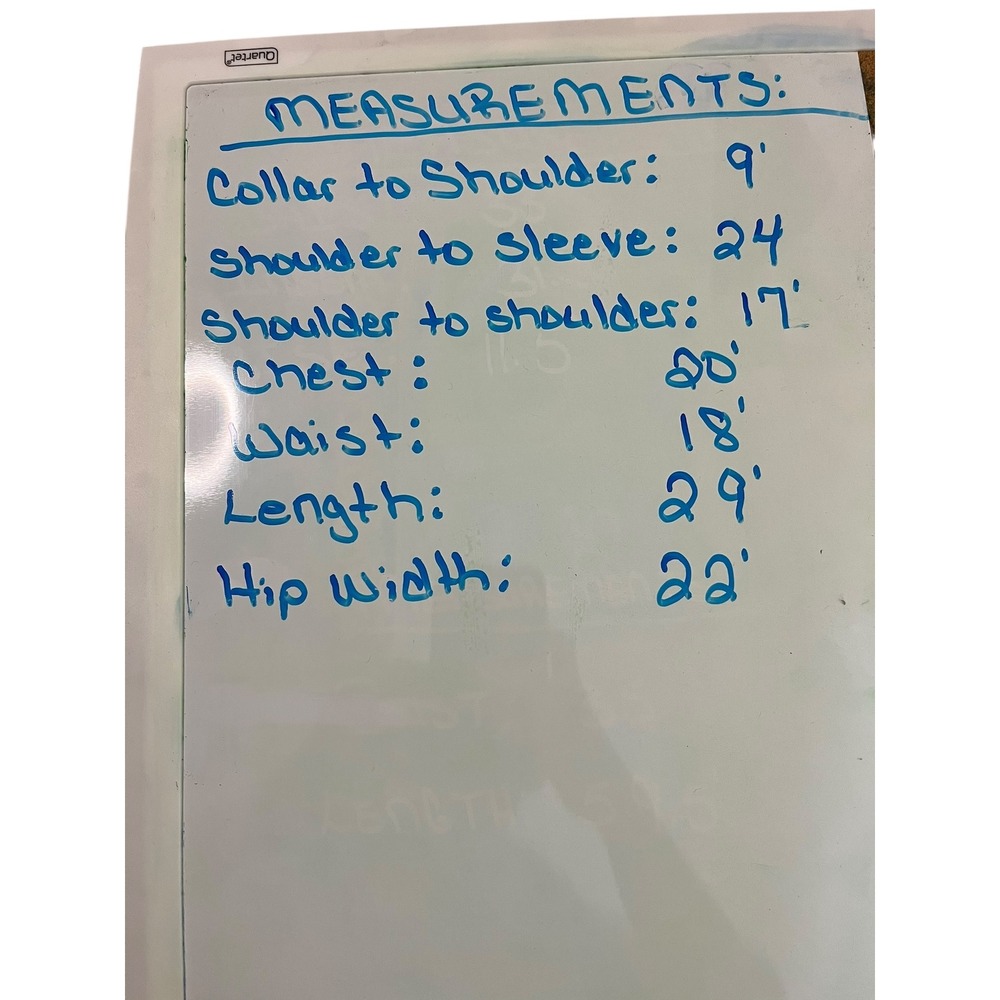 Quartet
MEASUREMENTS:
Collar to Shoulder: 9'
Shoulder to sleeve: 24
Shoulder to shoulder: 17'
Chest: 20'
Waist: 18'
Length: 29'
Hip Width: 22'